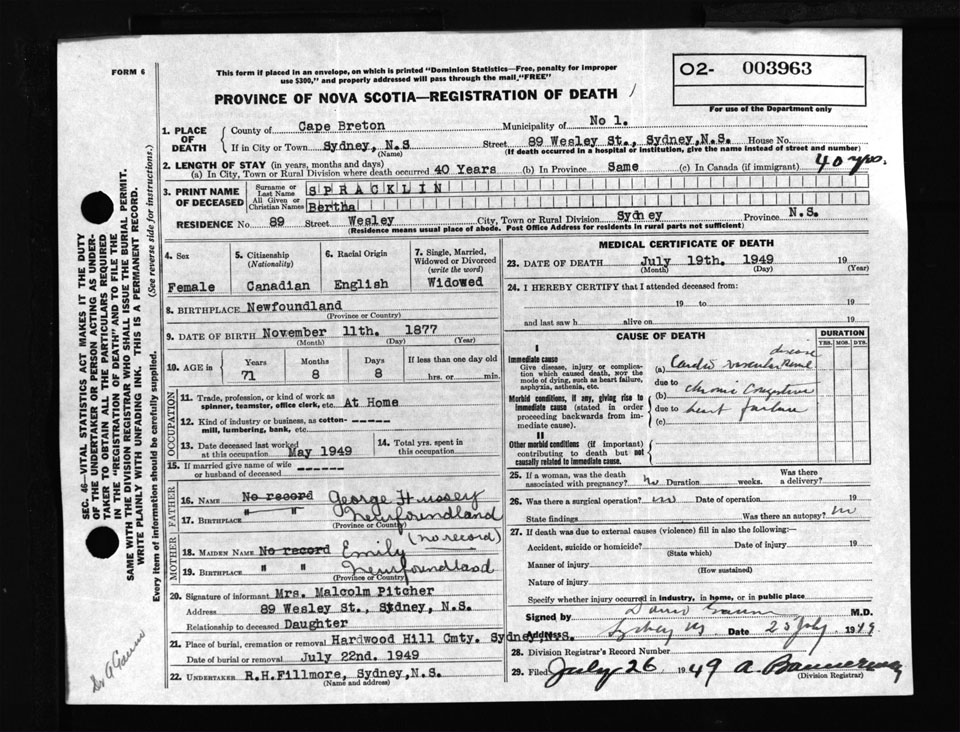 FORM 6
This form if placed in an envelope, on which is printed "Dominion Statistics—Free, penalty for improper
use $300," and properly addressed will pass through the mail, "FREE"
PROVINCE OF NOVA SCOTIA—REGISTRATION OF DEATH
O2- 003963
For use of the Department only
SEC. 46—VITAL STATISTICS ACT MAKES IT THE DUTY
OF THE UNDERTAKER OR PERSON ACTING AS UNDER-
TAKER TO OBTAIN ALL THE PARTICULARS REQUIRED
IN THE "REGISTRATION OF DEATH" AND TO FILE THE
SAME WITH THE DIVISION REGISTRAR WHO SHALL ISSUE THE BURIAL PERMIT.
WRITE PLAINLY WITH UNFADING INK. THIS IS A PERMANENT RECORD.
Every item of information should be carefully supplied. (See reverse side for instructions.)
1. PLACE OF DEATH
County of Cape Breton Municipality of No 1.
If in City or Town Sydney, N.S Street 89 Wesley St., Sydney,N.S. House No.
(Name) (If death occurred in a hospital or institution, give the name instead of street and number)
2. LENGTH OF STAY (in years, months and days)
(a) In City, Town or Rural Division where death occurred 40 Years (b) In Province Same (c) In Canada (if immigrant) 40 yrs.
3. PRINT NAME OF DECEASED
Surname or Last Name SPRACKLIN
All Given or Christian Names Bertha
RESIDENCE No 89 Street Wesley City, Town or Rural Division Sydney Province N.S.
(Residence means usual place of abode. Post Office Address for residents in rural parts not sufficient)
4. Sex
Female
5. Citizenship
(Nationality)
Canadian
6. Racial Origin
English
7. Single, Married,
Widowed or Divorced
(write the word)
Widowed
8. BIRTHPLACE Newfoundland
(Province or Country)
9. DATE OF BIRTH November 11th. 1877
(Month) (Day) (Year)
10. AGE in
Years Months Days If less than one day old
71 8 8 hrs. or min.
OCCUPATION
11. Trade, profession, or kind of work as
spinner, teamster, office clerk, etc. At Home
12. Kind of industry or business, as cotton-
mill, lumbering, bank, etc.
13. Date deceased last worked
at this occupation May 1949
14. Total yrs. spent in
this occupation
15. If married give name of wife
or husband of deceased
FATHER
16. NAME No record George Hussey
17. BIRTHPLACE " " Newfoundland
(Province or Country)
MOTHER
18. MAIDEN NAME No record Emily (no record)
19. BIRTHPLACE " " Newfoundland
(Province or Country)
20. Signature of informant Mrs. Malcolm Pitcher
Address 89 Wesley St., Sydney, N.S.
Relationship to deceased Daughter
21. Place of burial, cremation or removal Hardwood Hill Cmty. Sydney N.S.
Date of burial or removal July 22nd. 1949
22. UNDERTAKER R.H.Fillmore, Sydney,N.S.
(Name and address)
MEDICAL CERTIFICATE OF DEATH
23. DATE OF DEATH July 19th. 1949 19
(Month) (Day) (Year)
24. I HEREBY CERTIFY that I attended deceased from:
19 to 19
and last saw h alive on 19
CAUSE OF DEATH
DURATION
YRS. MOS. DYS.
I
Immediate cause
Give disease, injury or complica-
tion which caused death, NOT the
mode of dying, such as heart failure,
asphyxia, asthenia, etc.
(a) Cardio vascular renal disease
due to
(b) chronic congestive
Morbid conditions, if any, giving rise to
immediate cause (stated in order
proceeding backwards from im-
mediate cause).
due to heart failure
(c)
II
Other morbid conditions (if important)
contributing to death but not
causally related to immediate cause.
25. If a woman, was the death
associated with pregnancy? no Duration weeks. Was there a delivery?
26. Was there a surgical operation? no Date of operation 19
State findings Was there an autopsy? no
27. If death was due to external causes (violence) fill in also the following:—
Accident, suicide or homicide? Date of injury 19
(State which)
Manner of injury
(How sustained)
Nature of injury
Specify whether injury occurred in industry, in home, or in public place
Signed by M.D.
Address Sydney NS Date 25 July 1949
28. Division Registrar's Record Number
29. Filed July 26 1949 A. Bannerman
(Division Registrar)